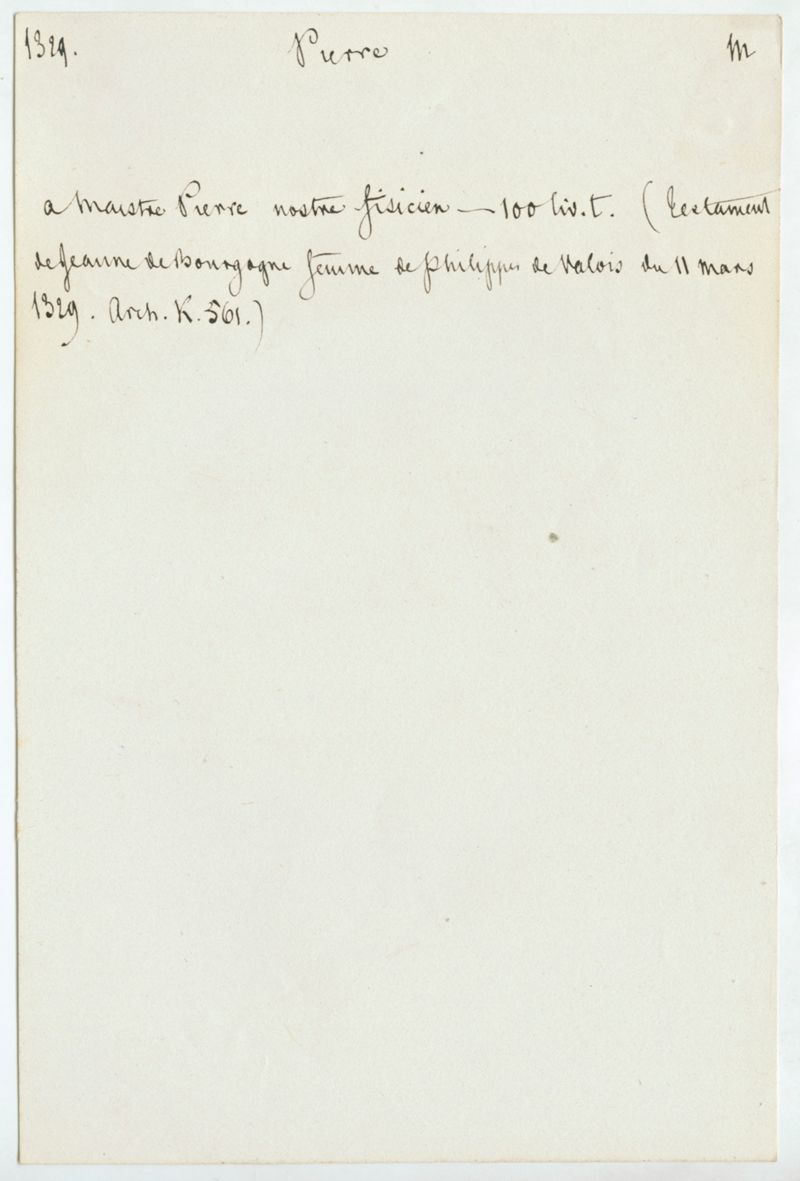 1329. Pierre M
a Maistre Pierre nostre fisicien — 100 liv. t. (Testament
de Jeanne de Bourgogne femme de Philippe de Valois du 11 mars
1329. Arch. K. 561.)